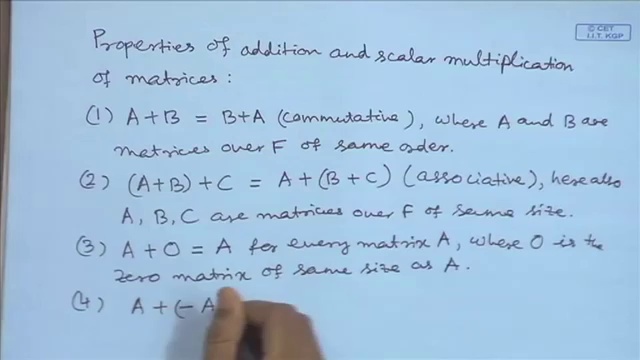 © CET
I.I.T. KGP
Properties of addition and scalar multiplication
of matrices :
(1) A+B = B+A (commutative), where A and B are
matrices over F of same order.
(2) (A+B)+C = A+(B+C) (associative), here also
A, B, C are matrices over F of same size.
(3) A+O = A for every matrix A, where O is the
zero matrix of same size as A.
(4) A+(-A